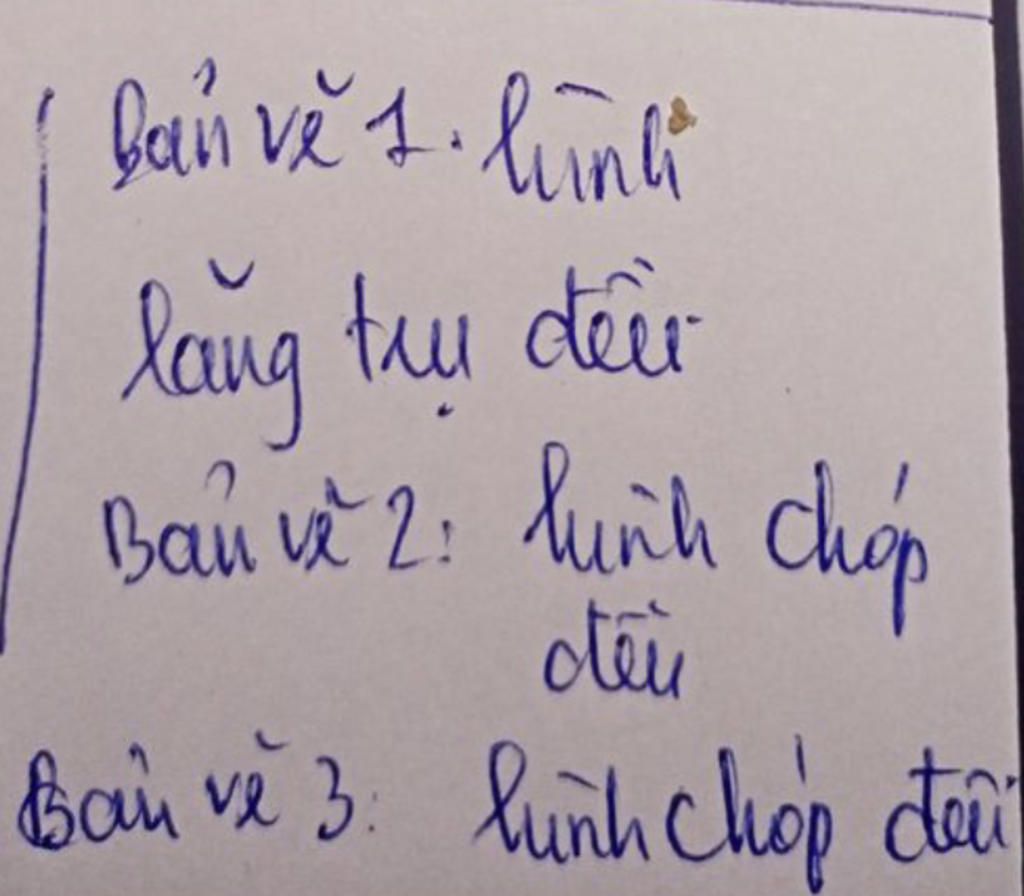 Bản vẽ 1. hình
lăng trụ đều
Bản vẽ 2: hình chóp
đều
Bản vẽ 3: hình chóp đều